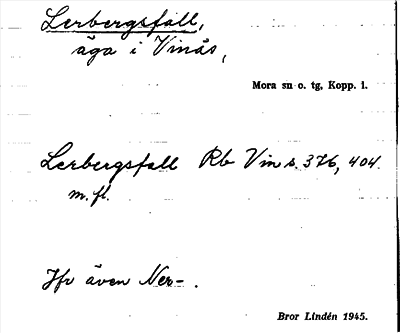 Lerbergsfall,
äga i Vinäs,
Mora sn o. tg, Kopp. l.
Lerbergsfall Rb Vin s. 376, 404.
m. fl.
Jfr även Ner- .
Bror Lindén 1945.